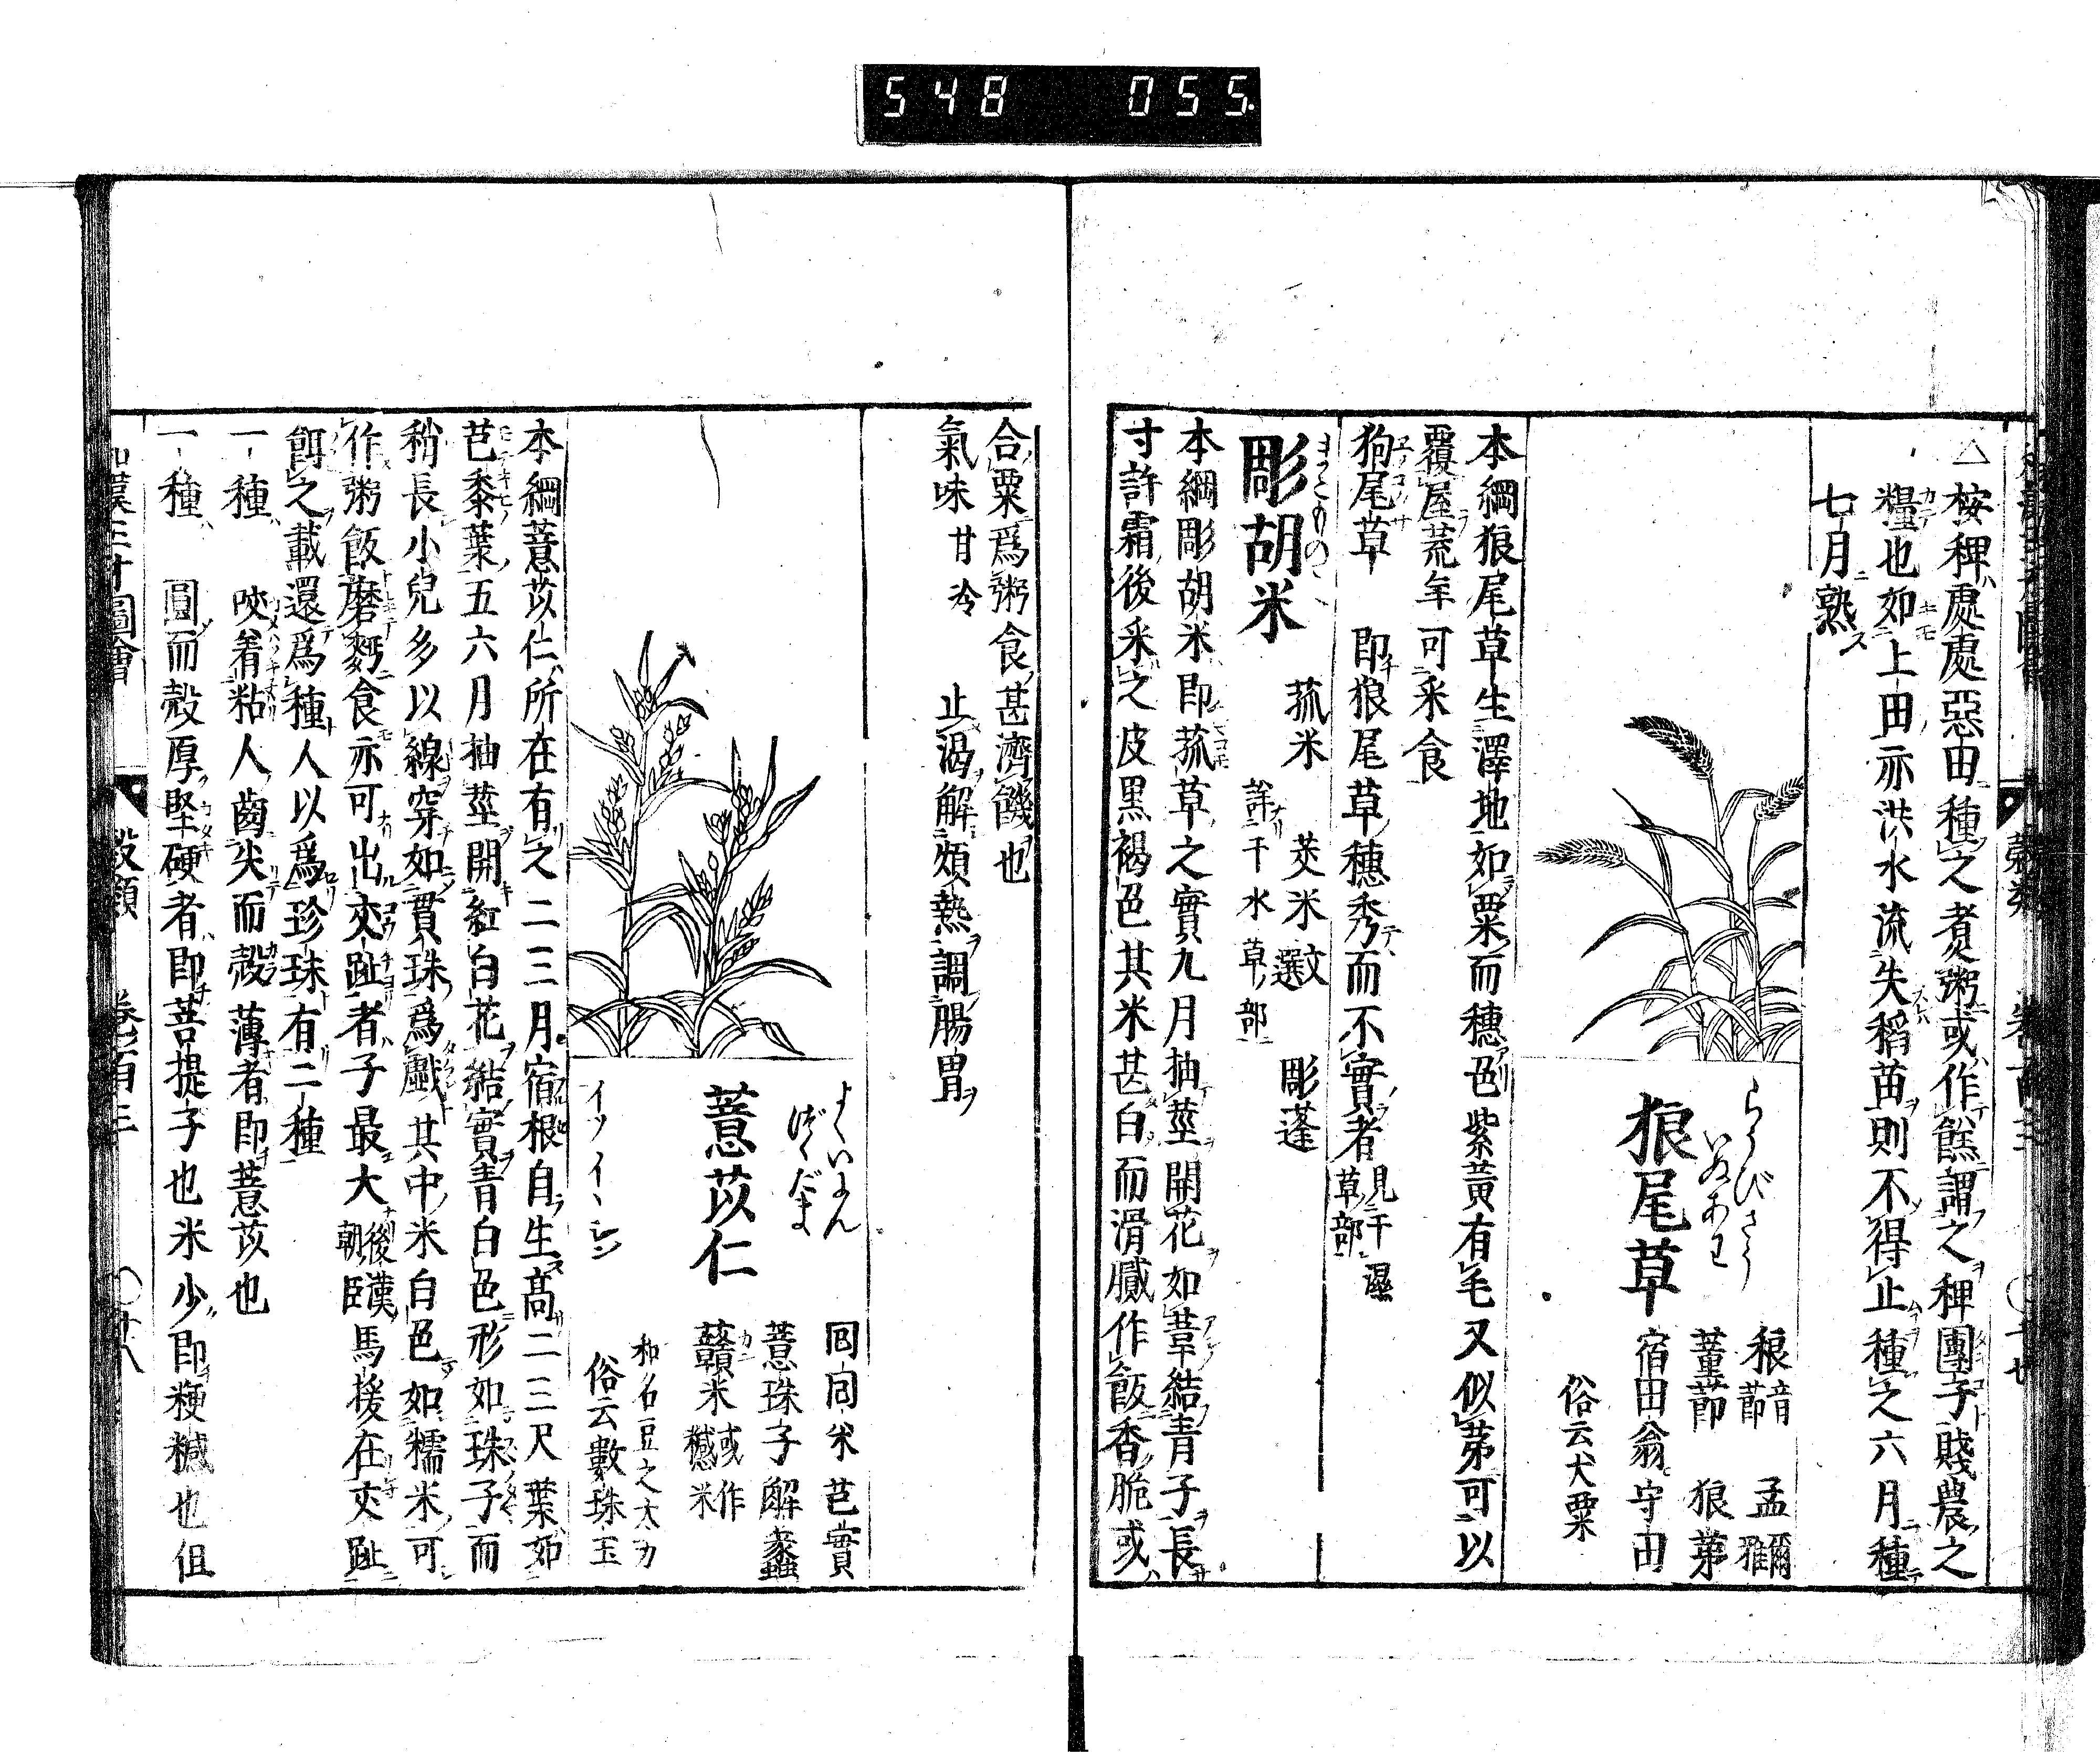 548 055
△桉稗處處惡田種之煑粥或作餻謂之稗團子賤農之
糧也如上田亦洪水流失稻苗則不得止種之六月種
七月熟
らうびさう
いぬあわ
狼尾草
稂 音 節 孟 爾雅
蕫蓈 狼茅
宿田翁 守田
俗云犬粟
本綱狼尾草生澤地如粟而穗色紫黃有毛又似茅可以
覆屋荒年可采食
狗尾草 即狼尾草穗秀而不實者見于濕草部
まこものこゝ
彫胡米
菰米 茭米文選 彫蓬
詳于水草部
本綱彫胡米即菰草之實九月抽莖開花如葦結青子長
寸許霜後采之皮黑褐色其米甚白而滑膩作飯香脆或
合粟爲粥食甚濟饑也
氣味甘冷 止渴解煩熱調腸胃
よくいにん
ずゞだま
薏苡仁
イツイヽヂン
回回米 芑實
薏珠子 解蠡
贛米 或作䊻米
和名豆之太万
俗云數珠玉
本綱薏苡仁所在有之二三月宿根自生高二三尺葉如
芑黍葉五六月抽莖開紅白花結實青白色形如珠子而
稍長小兒多以線穿如貫珠爲戲其中米白色如糯米可
作粥飯磨麪食亦可出交趾者子最大後漢朝臣馬援在交趾
餌之載還爲種人以爲珍珠有二種
一種 咬着粘人齒尖而殼薄者即薏苡也
一種 圓而殼厚堅硬者即菩提子也米少即粳𥽇也但
和漢三才圖會 穀類 卷百三 〇廿八